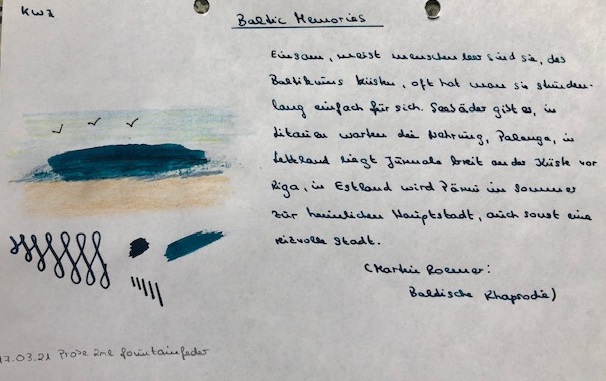 KWZ
Baltic Memories
Einsam, meist menschenleer sind sie, des
Baltikums Küsten, oft hat man sie stunden-
lang einfach für sich. Seebäder gibt es, in
Litauen warten die Nehrung, Palanga, in
Lettland liegt Jūrmala breit an der Küste vor
Riga, in Estland wird Pärnu im Sommer
zur heimlichen Hauptstadt, auch sonst eine
reizvolle Stadt.
(Martin Roemer:
Baltische Rhapsodie)
17.03.21 Probe fountainfeder